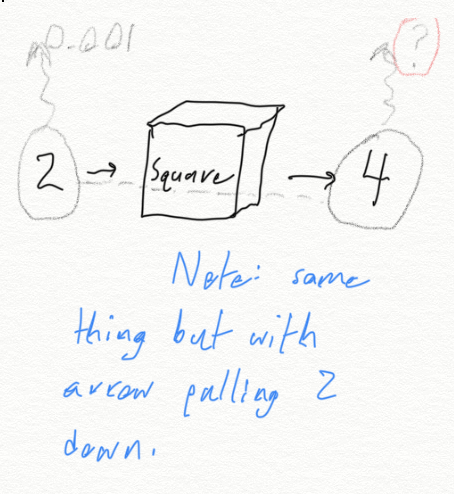 0.001 ?
2 Square 4
Note: same
thing but with
arrow pulling 2
down.